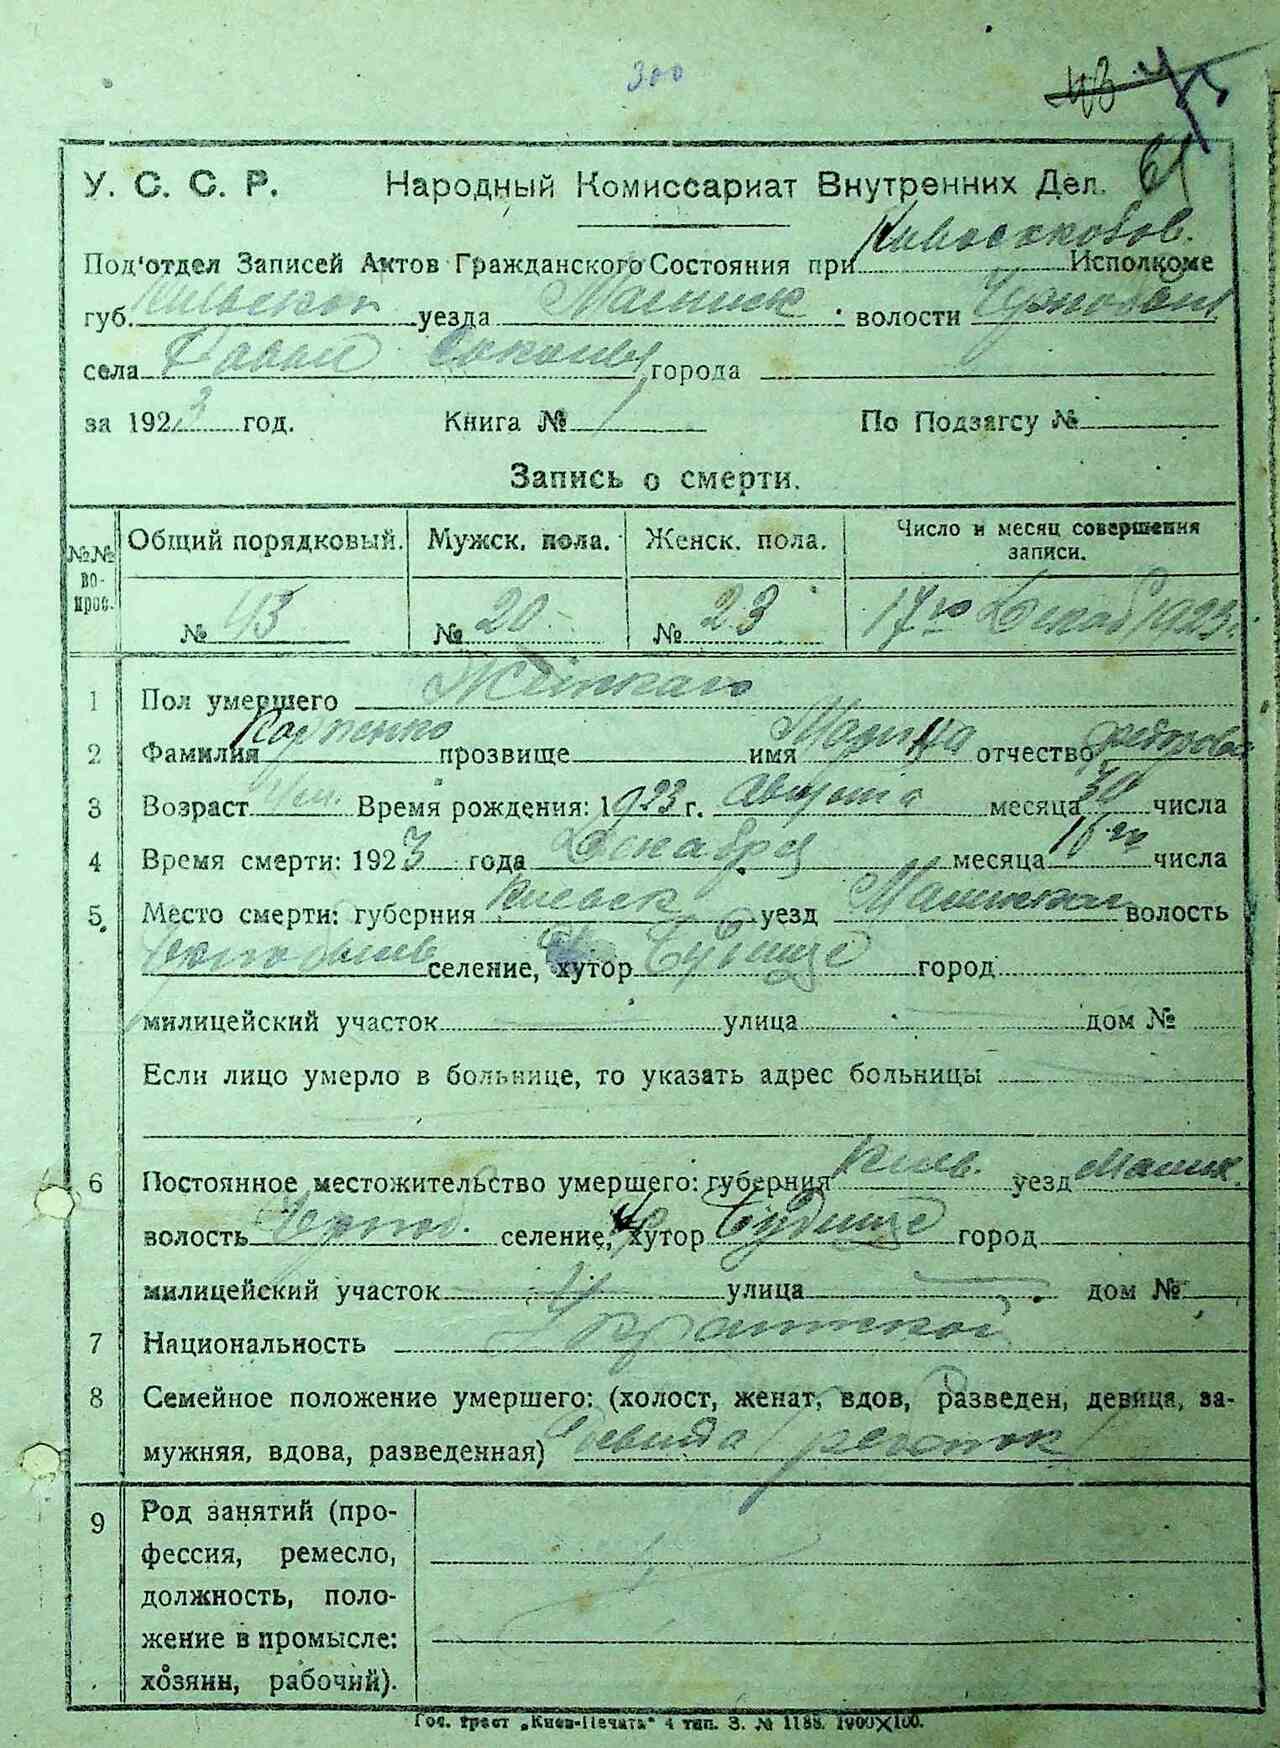 300
43
У. С. С. Р. Народный Комиссариат Внутренних Дел.
Под'отдел Записей Актов Гражданского Состояния при Исполкоме
губ. Киевской уезда Малинск волости
села города
за 1923 год. Книга № 1 По Подзагсу №
Запись о смерти.
№№ во-прос. Общий порядковый. Мужск. пола. Женск. пола. Число и месяц совершения записи.
№ 43 № 20 № 23 17го Декаб 1923.
1 Пол умершего
2 Фамилия Карпенко прозвище имя Марина отчество
3 Возраст Время рождения: 1923 г. Августа месяца 30 числа
4 Время смерти: 1923 года Декабря месяца 16го числа
5. Место смерти: губерния Киевск уезд волость
селение, хутор Будище город
милицейский участок улица дом №
Если лицо умерло в больнице, то указать адрес больницы
6 Постоянное местожительство умершего: губерния Киев. уезд Малин.
волость Черноб. селение, хутор Будище город
милицейский участок улица дом №
7 Национальность
8 Семейное положение умершего: (холост, женат, вдов, разведен, девица, за-
мужняя, вдова, разведенная) девица / ребенок /
9 Род занятий (про-
фессия, ремесло,
должность, поло-
жение в промысле:
хозяин, рабочий).
Гос. трест „Киев-Печать" 4 тип. З. № 1188. 1900×100.